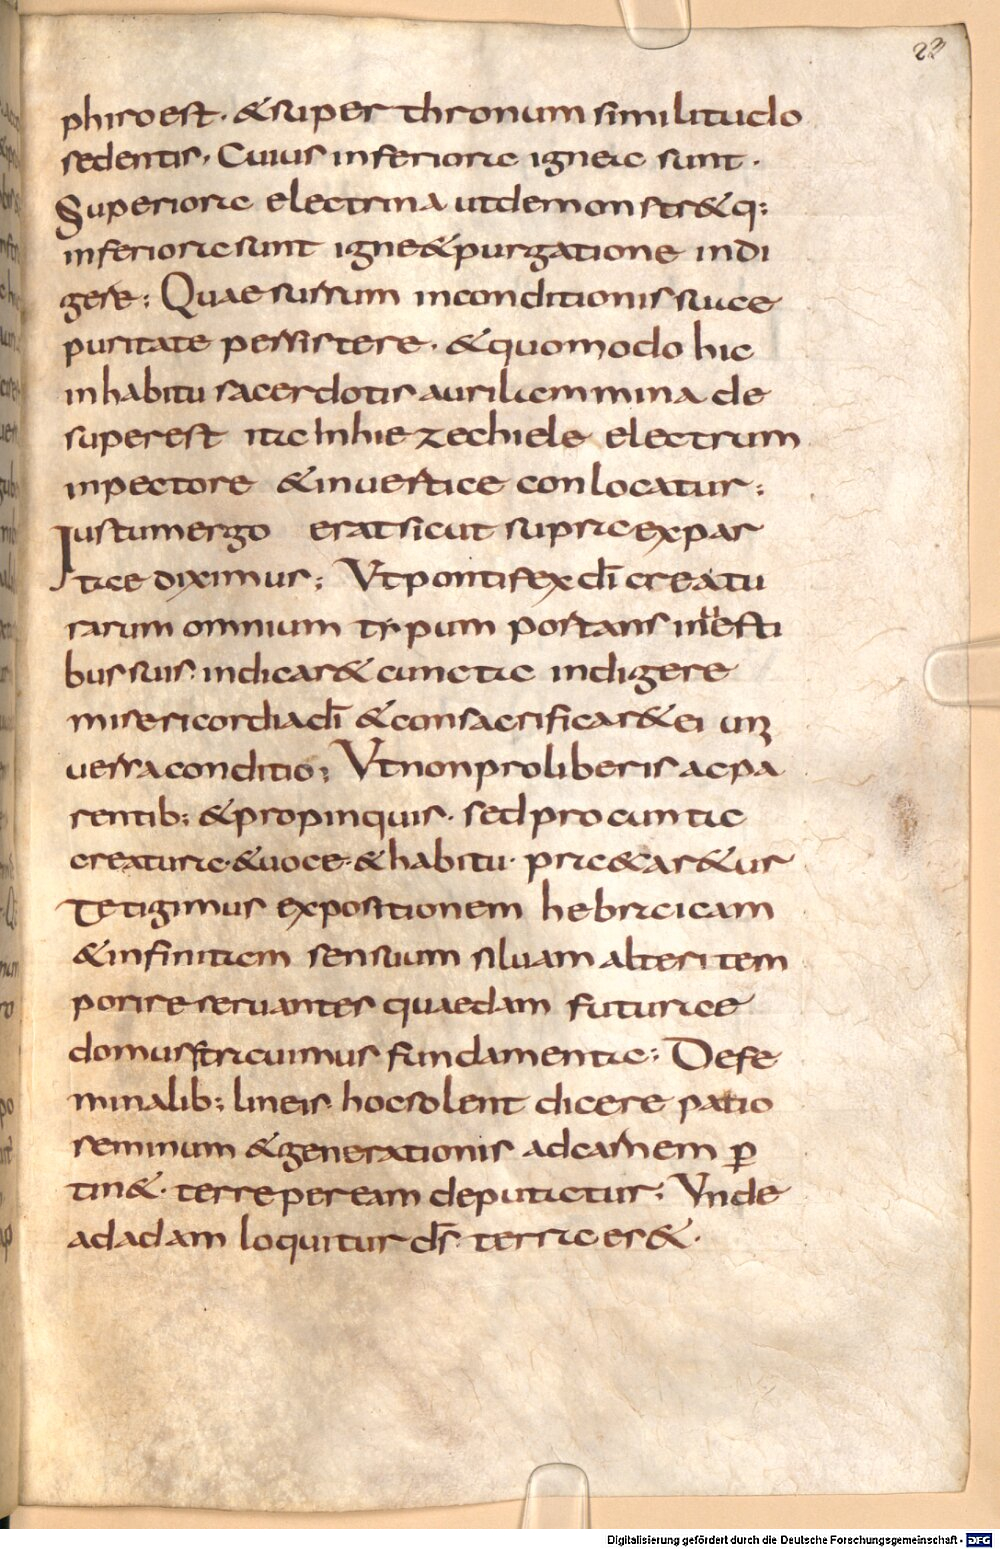 23
phiro est. & super thronum similitudo
sedentis. Cuius inferiora ignea sunt.
Superiora electrina ut demonstr&q;
inferiora sunt igne & purgatione indi
gere; Quae sursum in conditionis suae
puritate persistere. & quomodo hic
in habitu sacerdotis auri lammina de
super est ita In hiezechiele electrum
in pectore & in uertice conlocatur;
Iustum ergo erat sicut supra ex par
tae diximus; Vt pontifex dī creatu
rarum omnium typum portans in uesti
bus suis. indicar& cuncta indigere
misericordia dī & cum sacrificar& ei uniz
uersa conditio; Vt non pro liberis ac pa
rentib; & propinquis. sed pro cuncta
creatura. & uoce. & habitu. praecar&ur
Tetigimus expositionem hebraicam
& infinitam sensuum siluam alteri tem
pori reseruantes quaedam futurae
domus strauimus fundamenta; De fe
minalib; lineis hoc solent dicere patio
seminum & generationis ad carnem ꝑ
tin&. terre per eam deputatur; Vnde
ad adam loquitur ds̄ terra es &.
Digitalisierung gefördert durch die Deutsche Forschungsgemeinschaft - DFG